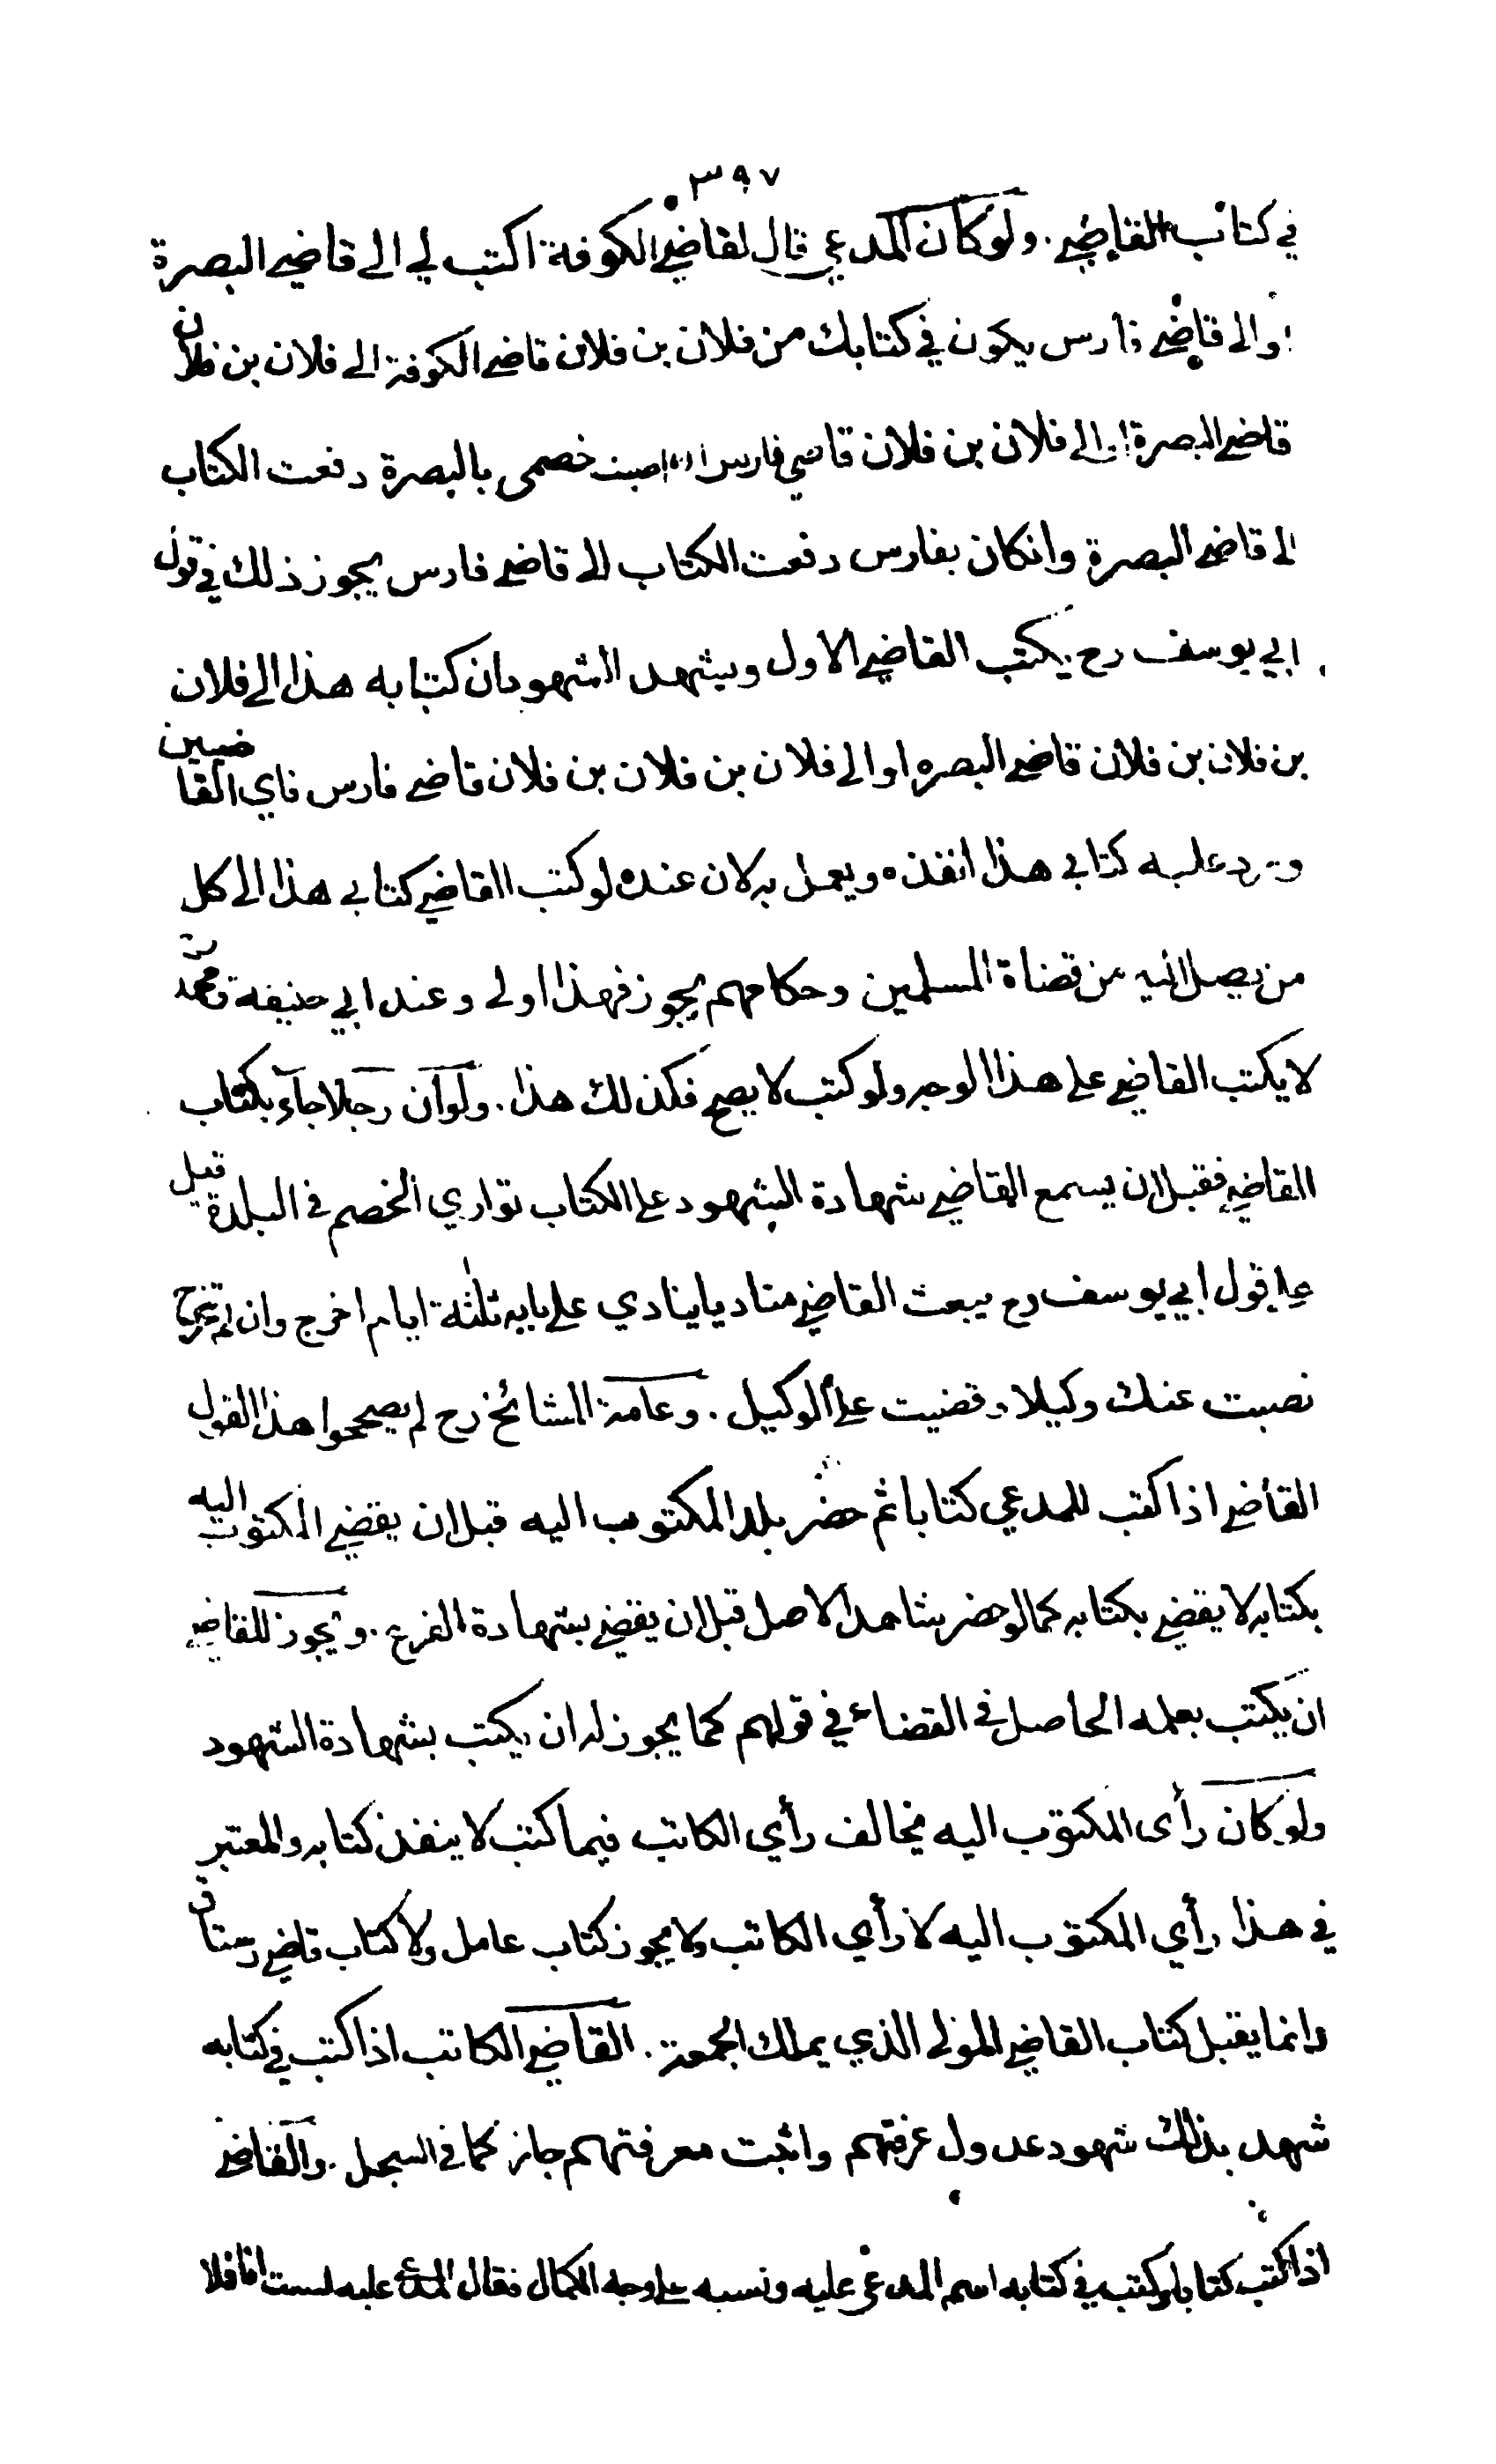 ٣٩٧
في كتاب القاضي . ولوكان المدعي قال لقاضي الكوفة اكتب لي الى قاضي البصرة
او الى قاضي فارس يكون في كتابك من فلان بن فلان قاضي الكوفة الى فلان بن فلان
قاضي البصرة او الى فلان بن فلان قاضي فارس اصبت خصمى بالبصرة دفعت الكتاب
الى قاضي البصرة وانكان بفارس دفعت الكتاب الى قاضي فارس يجوز ذلك في قول
ابي يوسف رح يكتب القاضي الاول ويشهد الشهود ان كتابه هذا الى فلان
بن فلان بن فلان قاضي البصره او الى فلان بن فلان بن فلان قاضي فارس فاي القاضيين
ورد عليه كتابي هذا انفذه ويعمل به لان عنده لو كتب القاضي كتابي هذا الى كل
من يصل اليه من قضاة المسلمين وحكامهم يجوز فهذا اولى وعند ابي حنيفة ومحمد رح
لا يكتب القاضي على هذا الوجه ولو كتب لا يصح فكذلك هذا . ولو ان رجلا جاء بكتاب
القاضي فقبل ان يسمع القاضي شهادة الشهود على الكتاب توارى الخصم في البلدة قيل
على قول ابي يوسف رح يبعث القاضي مناديا ينادي على بابه ثلثة ايام اخرج وان لم تخرج
نصبت عنك وكيلا وقضيت على الوكيل . وعامة المشائخ رح لم يصححوا هذا القول
القاضي اذا كتب للمدعي كتابا ثم حضر بلد المكتوب اليه قبل ان يقضي المكتوب اليه
بكتابه لا يقضي بكتابه كما لو حضر شاهد الاصل قبل ان يقضي بشهادة الفرع . ويجوز للقاضي
ان يكتب بعلمه الحاصل في القضاء في قولهم كما يجوز له ان يكتب بشهادة الشهود
ولو كان رأى المكتوب اليه مخالف رأي الكاتب فيما كتب لا ينفذ كتابه والمعتبر
في هذا رأي المكتوب اليه لا رأي الكاتب ولا يجوز كتاب عامل ولا كتاب قاضي رستاق
وانما يقبل كتاب القاضي المولى الذي يملك الجمعة . القاضي الكاتب اذا كتب في كتابه
شهد بذلك شهود عدول عرفتهم واثبت معرفتهم جاز كما في السجل . والقاضي
اذا كتب كتابا وكتب في كتابه اسم المدعى عليه ونسبه على وجه الكمال فقال المدعى عليه لست انا فلا